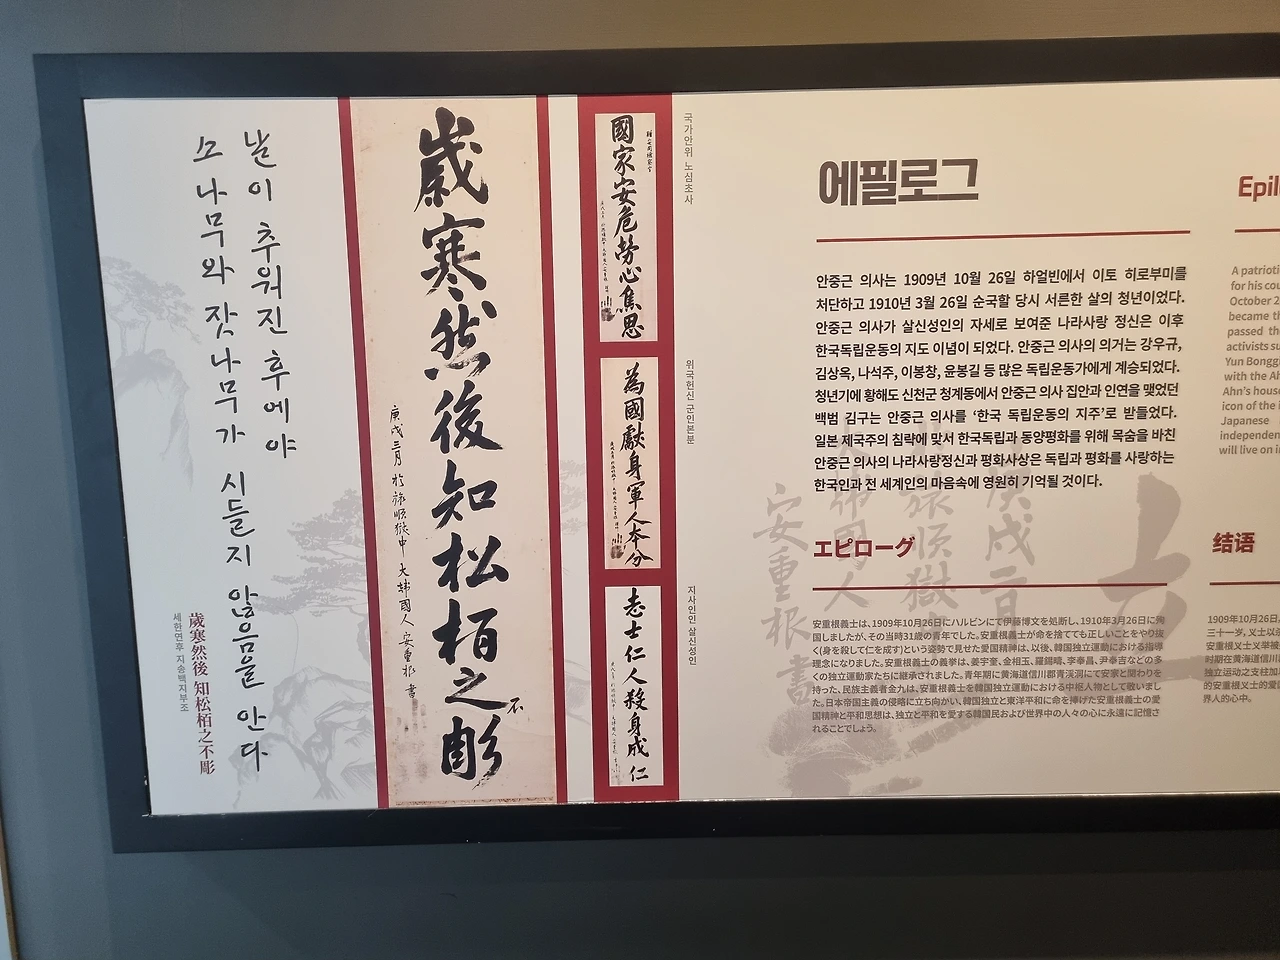 날이 추워진 후에야
소나무와 잣나무가 시들지 않음을 안다
歲寒然後 知松栢之不彫
세한연후 지송백지부조
歲寒然後知松栢之不彫
庚戌三月 於旅順獄中 大韓國人 安重根 書
國家安危勞心焦思
국가안위 노심초사
為國獻身軍人本分
위국헌신 군인본분
志士仁人殺身成仁
지사인인 살신성인
에필로그
안중근 의사는 1909년 10월 26일 하얼빈에서 이토 히로부미를
처단하고 1910년 3월 26일 순국할 당시 서른한 살의 청년이었다.
안중근 의사가 살신성인의 자세로 보여준 나라사랑 정신은 이후
한국독립운동의 지도 이념이 되었다. 안중근 의사의 의거는 강우규,
김상옥, 나석주, 이봉창, 윤봉길 등 많은 독립운동가에게 계승되었다.
청년기에 황해도 신천군 청계동에서 안중근 의사 집안과 인연을 맺었던
백범 김구는 안중근 의사를 ‘한국 독립운동의 지주’로 받들었다.
일본 제국주의 침략에 맞서 한국독립과 동양평화를 위해 목숨을 바친
안중근 의사의 나라사랑정신과 평화사상은 독립과 평화를 사랑하는
한국인과 전 세계인의 마음속에 영원히 기억될 것이다.
Epil
A patrioti
for his cou
October 2
became th
passed the
activists su
Yun Bongg
with the Ah
Ahn's house
icon of the i
Japanese
independen
will live on in
エピローグ
安重根義士は、1909年10月26日にハルビンにて伊藤博文を処断し、1910年3月26日に殉
国しましたが、その当時31歳の青年でした。安重根義士が命を捨てても正しいことをやり抜
く(身を殺して仁を成す)という姿勢で見せた愛国精神は、以後、韓国独立運動における指導
理念になりました。安重根義士の義挙は、姜宇奎、金相玉、羅錫疇、李奉昌、尹奉吉などの多
くの独立運動家たちに継承されました。青年期に黄海道信川郡青渓洞にて安家と関わりを
持った、民族主義者金九は、安重根義士を韓国独立運動における中枢人物として敬いまし
た。日本帝国主義の侵略に立ち向かい、韓国独立と東洋平和に命を捧げた安重根義士の愛
国精神と平和思想は、独立と平和を愛する韓国民および世界中の人々の心に永遠に記憶さ
れることでしょう。
结语
1909年10月26日,
三十一岁，义士以
安重根义士义举被
时期在黄海道信川
独立运动之支柱加
的安重根义士的爱
界人的心中。
大韓國人
安重根 書